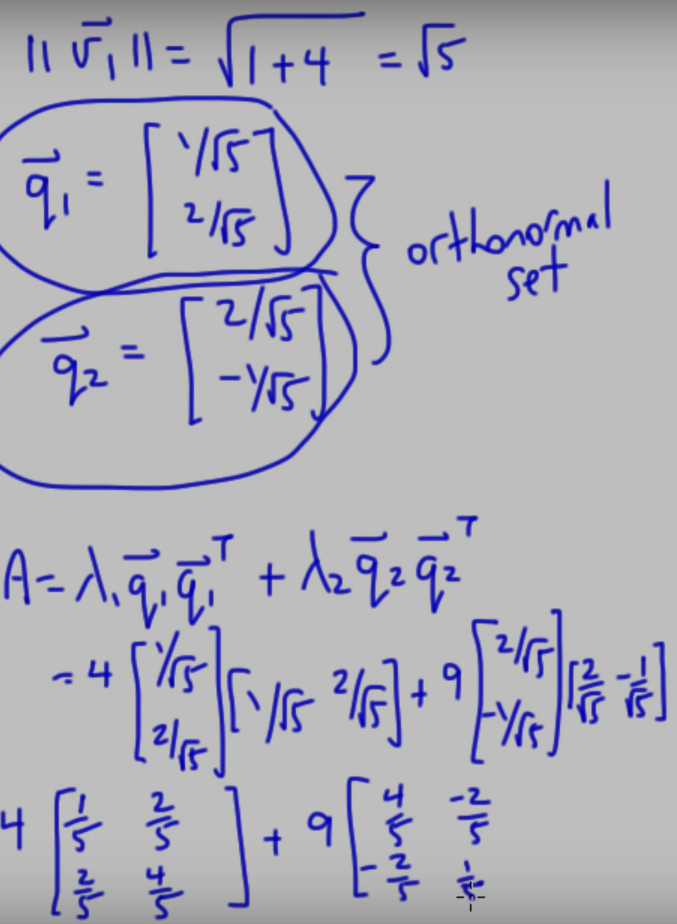 ||v⃗₁|| = √(1+4) = √5
q⃗₁ = [1/√5 2/√5]
orthonormal set
q⃗₂ = [2/√5 -1/√5]
A = λ₁q⃗₁q⃗₁ᵀ + λ₂q⃗₂q⃗₂ᵀ
= 4 [1/√5 2/√5] [1/√5 2/√5] + 9 [2/√5 -1/√5] [2/√5 -1/√5]
4 [1/5 2/5 2/5 4/5] + 9 [4/5 -2/5 -2/5 1/5]